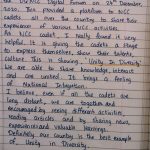 the DG NCC Digital Forum on 24th December,
2020. This provided a platform to NCC
cadets all over the country to share their
experiences of various NCC activities.
As NCC cadet, I really found it very
helpful. It is giving the cadets a stage
to express themselves, show their talents,
culture. This is showing, Unity in Diversity
We are able to share knowledge, interact
and are united. It brings a feeling
of National Integration.
I believe, even if all the cadets are
long distant, we are together and
encouraged by seeing different activities
reading articles and by sharing news,
experiences and valuable learnings.
Definitely our country is the best example
of Unity in Diversity.